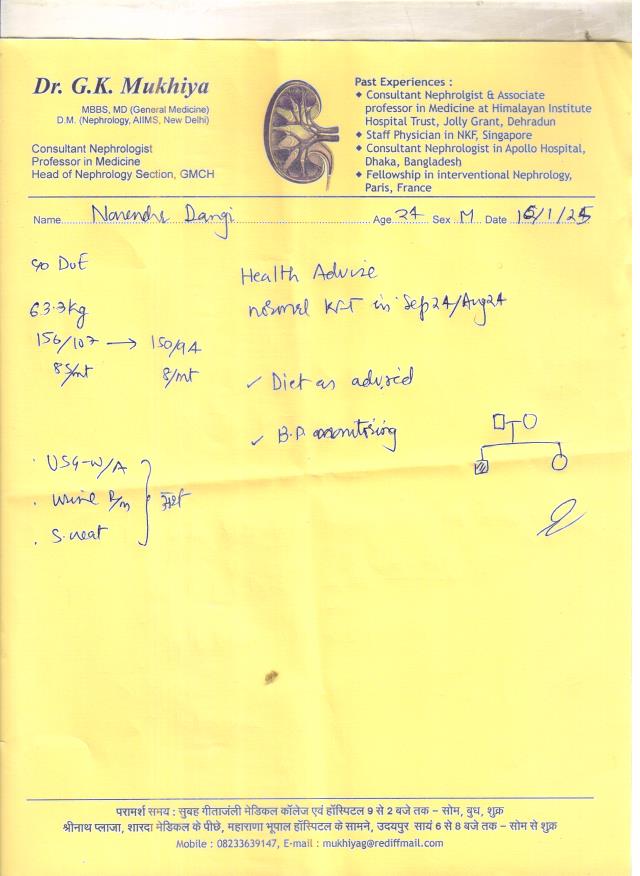 Dr. G.K. Mukhiya
MBBS, MD (General Medicine)
D.M. (Nephrology, AIIMS, New Delhi)
Consultant Nephrologist
Professor in Medicine
Head of Nephrology Section, GMCH
Past Experiences :
◆ Consultant Nephrolgist & Associate
professor in Medicine at Himalayan Institute
Hospital Trust, Jolly Grant, Dehradun
◆ Staff Physician in NKF, Singapore
◆ Consultant Nephrologist in Apollo Hospital,
Dhaka, Bangladesh
◆ Fellowship in interventional Nephrology,
Paris, France
Name Narendra Dangi Age 24 Sex M Date
Health Advise
normal KFT in Sep24/Aug24
63.3kg
156/107 → 150/94
✓ Diet as advised
✓ B.P. monitoring
. USG-W/A
. urine R/m
. S.creat
परामर्श समय : सुबह गीतांजली मेडिकल कॉलेज एवं हॉस्पिटल 9 से 2 बजे तक – सोम, बुध, शुक्र
श्रीनाथ प्लाजा, शारदा मेडिकल के पीछे, महाराणा भूपाल हॉस्पिटल के सामने, उदयपुर सायं 6 से 8 बजे तक – सोम से शुक्र
Mobile : 08233639147, E-mail : mukhiyag@rediffmail.com